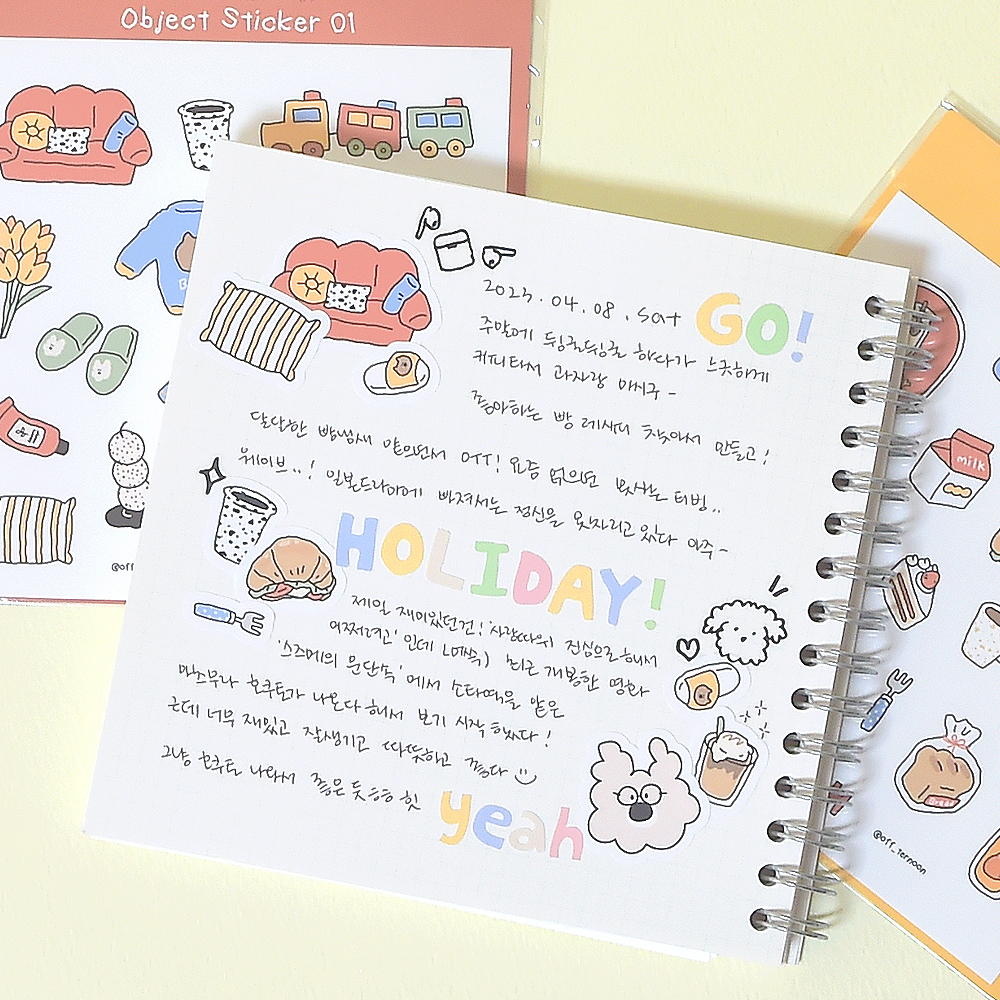 Object Sticker 01
2023.04.08.sat GO!
주말에 뒹굴뒹굴 하다가 느긋하게
커피타서 과자랑 먹구 -
좋아하는 빵 레시피 찾아서 만들고!
달달한 빵냄새 맡으면서 OTT! 요즘 없으면 못사는 티빙..
웨이브..! 일본드라마에 빠져서는 정신을 못차리고 있다 아주 -
HOLIDAY!
제일 재미있던건! '사랑따위 진심으로 해서
어쩌려고' 인데 최근 개봉한 영화
'스즈메의 문단속' 에서 소타역을 맡은
마츠무라 호쿠토가 나온다 해서 보기 시작했다!
근데 너무 재밌고 잘생기고 따뜻하고 좋다
그냥 호쿠토 나와서 좋은 듯
yeah
milk
Bread
@off_ternoon
@off